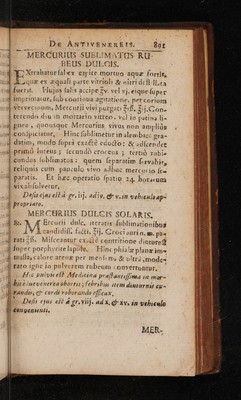 DE ANTIVENEREIS. 801
MERCURIUS SUBLIMATUS RU-
BEUS DULCIS.
EXtrahatur sal ex capite mortuo aquæ fortis,
quæ ex æquali parte vitrioli & nitri destillata
fuerit. Hujus salis accipe ʒv. vel vj. eique super
imprimatur, sub continua agitatione, per corium
vervecinum, Mercurii vivi purgati
terendo diu in mortario vitreo, vel in patina li-
gnea; donicque Mercurius vivus non amplius
conspiciatur. Hinc sublimetur in alembico: gra-
datim, modo supra exacté edocto: & adscendet
primò luteus; secundò croceus; tertiò rubi-
cundus sublimatus: quem separatim servabis,
reliquis cum paululo vivo adhuc mercurio se-
paratis. Et hæc operatio spatio 24. horarum
vix absolvetur.
Dosis ejus est à gr. iij. ad iv. & v. in vehiculo ap-
propriato.
MERCURIUS DULCIS SOLARIS.
MErcurii dulc. iteratis sublimationibus
candidiss. facti. ℥ij. Croci auri n. m. pa-
rati ʒß. Misceantur exactè contritione diuturnâ
super porphyrite lapide. Hinc phialæ planæ im-
missa, calore arenæ per mensem & ultrà, mode-
rato igne in pulverem rubeum convertuntur.
Hæ unione est Medicina præstantissima in mor-
bis è lue venerea abortis; febribus item diuturnis cu-
randis, & corde roborando efficax.
Dosis ejus est à gr. viij. ad x. & xv. in vehiculo
convenienti.
MER-